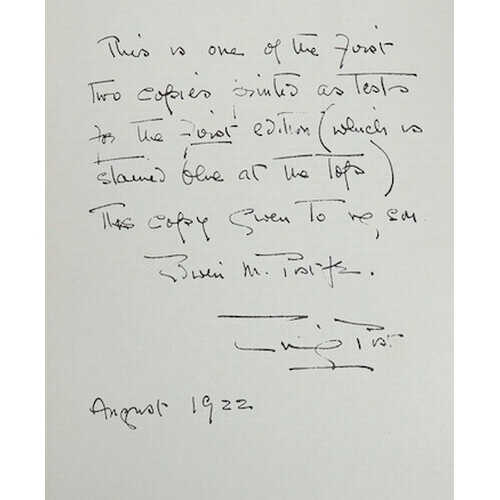 This is one of the First
Two copies printed as Tests
for the First edition (which is
stained blue at the Tops)
This copy given To my son
Edwin M. Post Jr.
Emily Post
August 1922